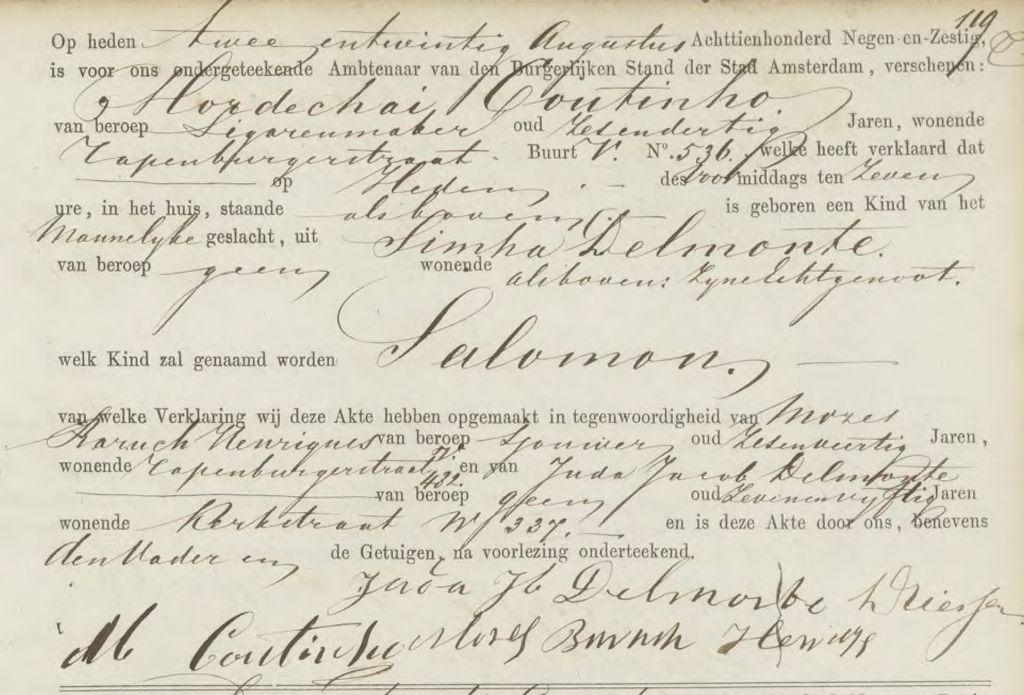 119
Op heden twee entwintig Augustus Achttienhonderd Negen-en-Zestig,
is voor ons ondergeteekende Ambtenaar van den Burgerlijken Stand der Stad Amsterdam, verschenen:
Mordechai Coutinho
van beroep Sigarenmaker oud Zesendertig Jaren, wonende
Uapenburgerstraat. Buurt V. No. 536. welke heeft verklaard dat
op Heden des voormiddags ten Zeven
ure, in het huis, staande alsboven is geboren een Kind van het
Mannelyke geslacht, uit Simha Delmonte.
van beroep geen wonende alsboven: Zyne Echtgenoot.
welk Kind zal genaamd worden Salomon.
van welke Verklaring wij deze Akte hebben opgemaakt in tegenwoordigheid van Mozes
Baruch Henriques van beroep Sjouwer oud Zesenveertig Jaren,
wonende Uapenburgerstraat V. 482. en van Juda Jacob Delmonte
van beroep geen oud Zevenenvyftig Jaren
wonende Kerkstraat W 337. en is deze Akte door ons, benevens
den Vader en de Getuigen, na voorlezing onderteekend.
Juda Jb Delmonte
M Coutinho Mozes Baruch